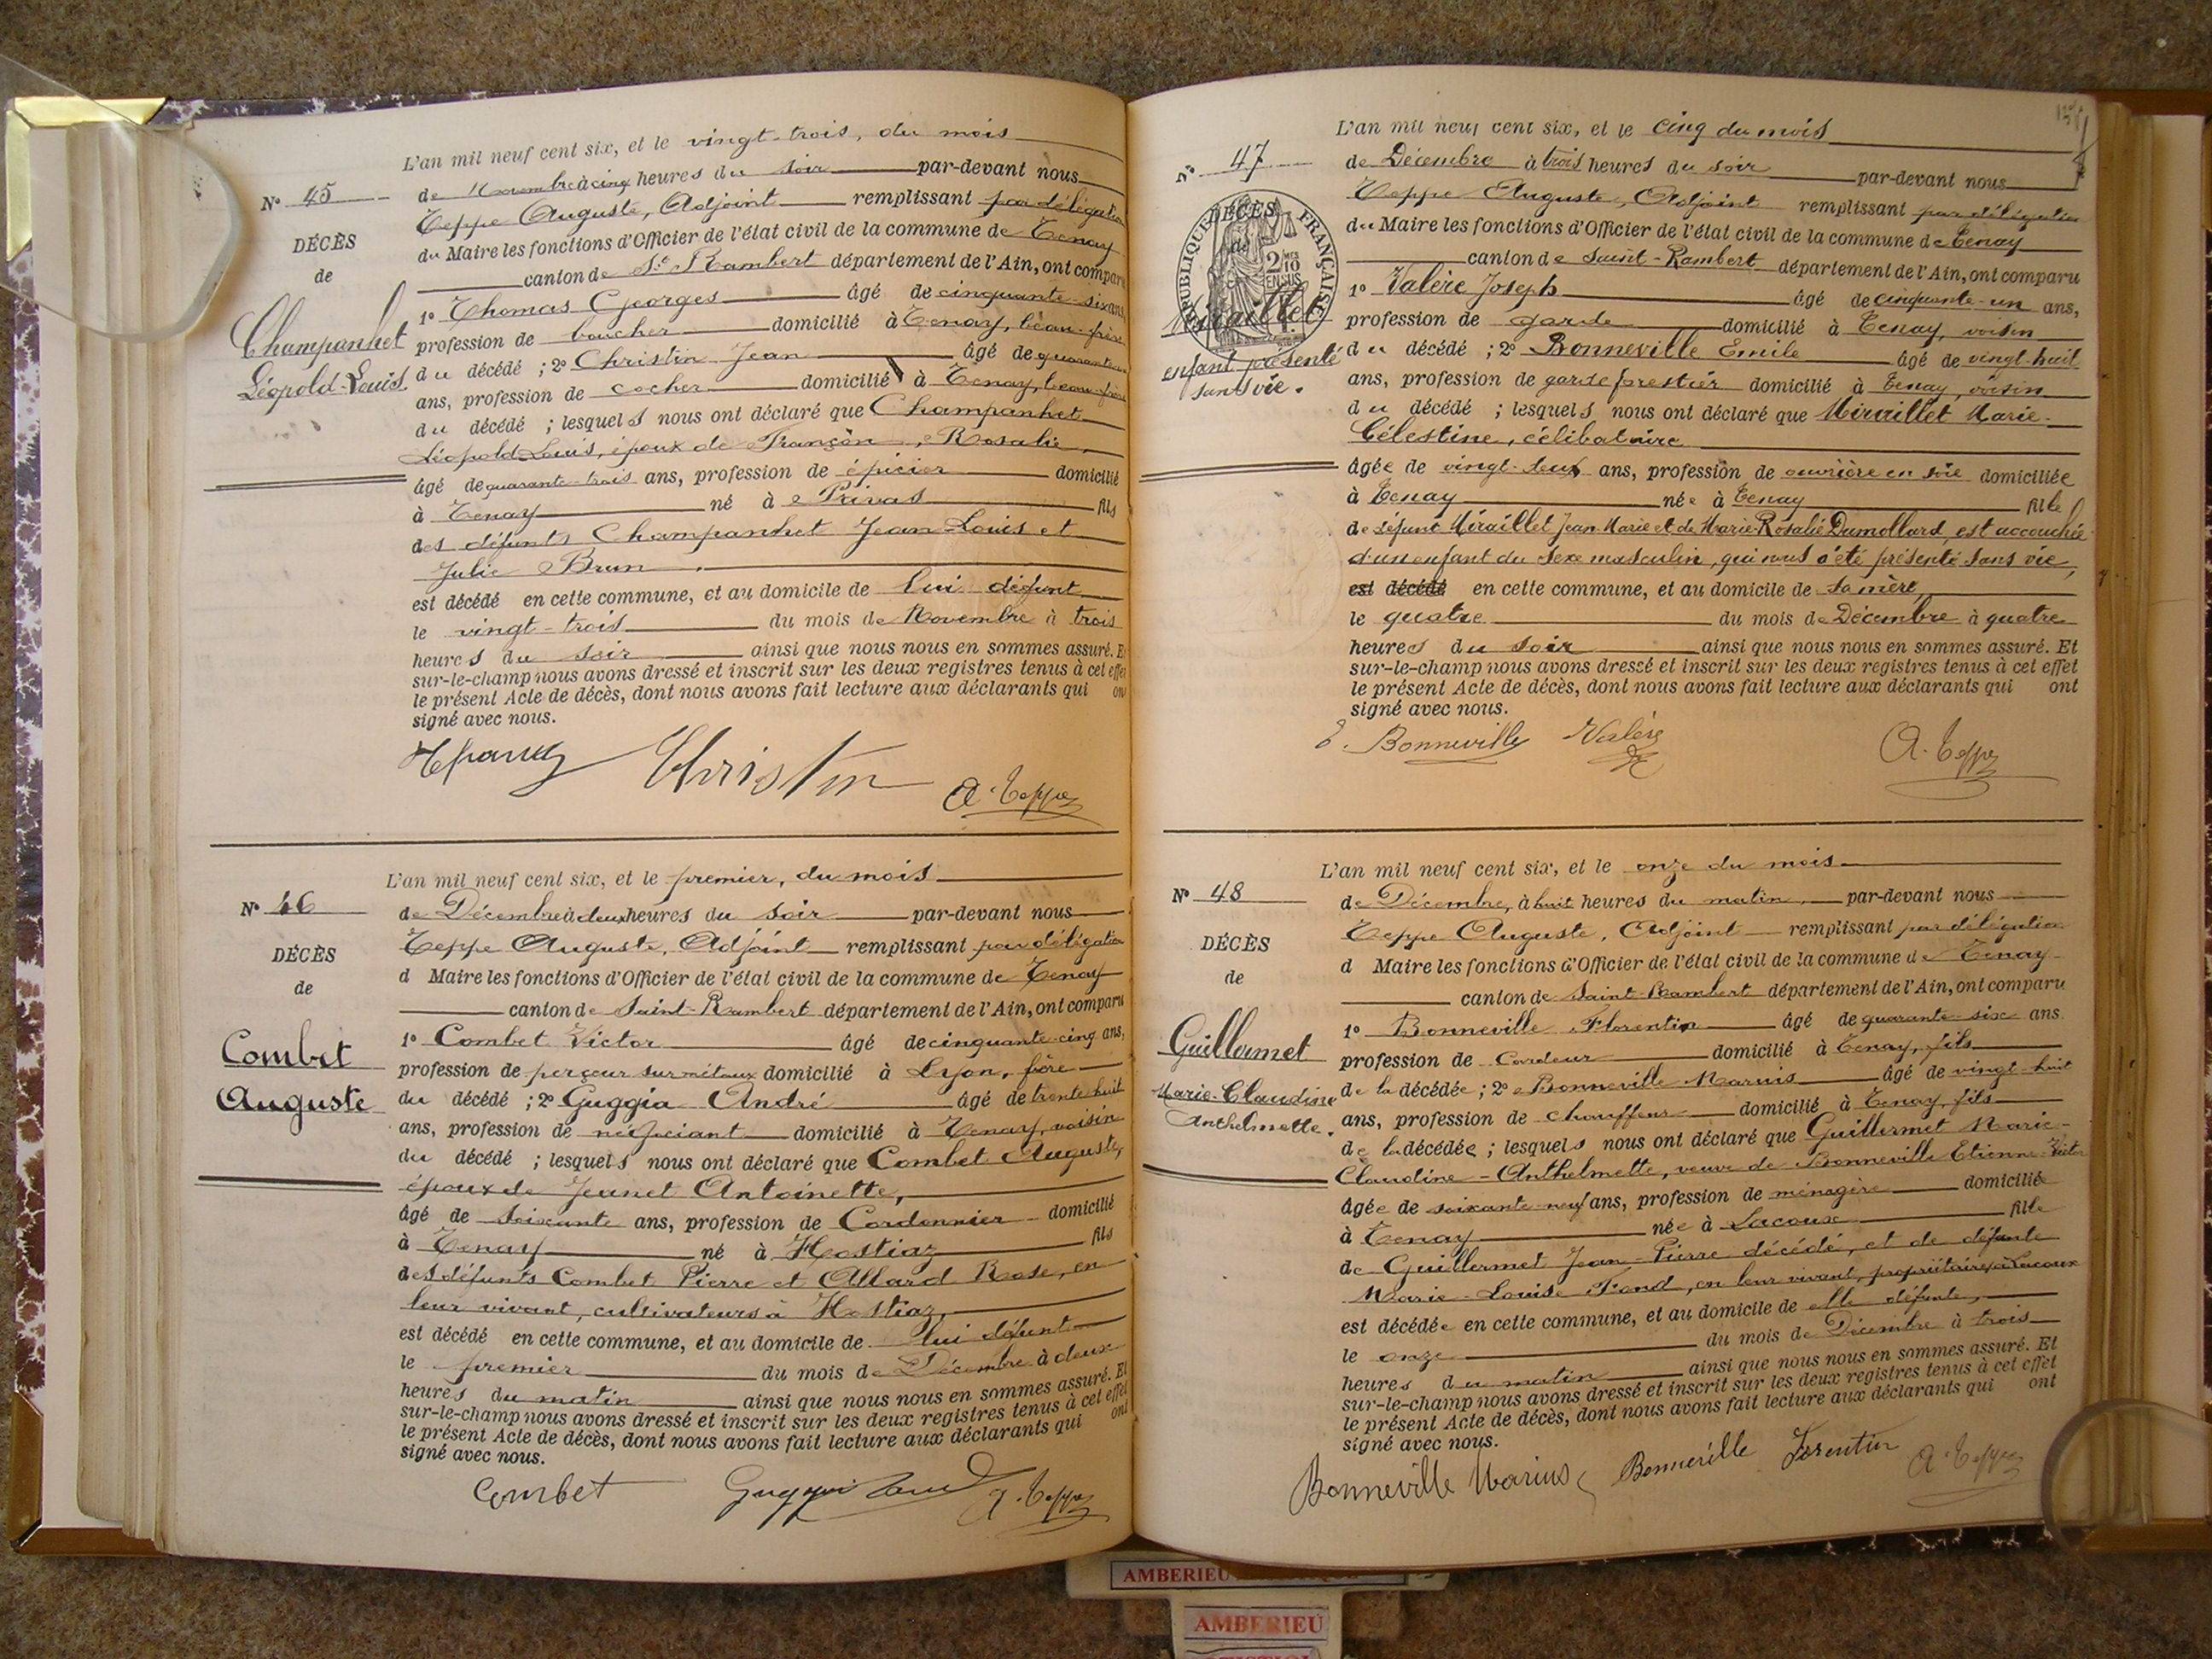 L'an mil neuf cent six, et le vingt-trois, du mois
N° 45
de Novembre à cinq heures du soir par-devant nous
Teppe Auguste, Adjoint remplissant par délégation
DÉCÈS
du Maire les fonctions d'Officier de l'état civil de la commune de Tenay
de
canton de St Rambert département de l'Ain, ont comparu
Champanhet
Léopold-Louis.
1° Thomas Georges âgé de cinquante-six ans,
profession de boucher domicilié à Tenay, beau-frère
du décédé ; 2° Christin Jean âgé de quarante
ans, profession de cocher domicilié à Tenay, beau-frère
du décédé ; lesquels nous ont déclaré que Champanhet
Léopold Louis, époux de Françon, Rosalie,
âgé de quarante-trois ans, profession de épicier domicilié
à Tenay né à Privas fils
des défunts Champanhet Jean Louis et
Julie Brun.
est décédé en cette commune, et au domicile de lui défunt
le vingt-trois du mois de Novembre à trois
heures du soir ainsi que nous nous en sommes assuré. Et
sur-le-champ nous avons dressé et inscrit sur les deux registres tenus à cet effet
le présent Acte de décès, dont nous avons fait lecture aux déclarants qui ont
signé avec nous.
Christin A. Teppe
L'an mil neuf cent six, et le premier, du mois
N° 46
de Décembre à deux heures du soir par-devant nous
Teppe Auguste, Adjoint remplissant par délégation
DÉCÈS
d Maire les fonctions d'Officier de l'état civil de la commune de Tenay
de
canton de Saint-Rambert département de l'Ain, ont comparu
Combet
Auguste
1° Combet Victor âgé de cinquante-cinq ans,
profession de perçeur sur métaux domicilié à Lyon, frère
du décédé ; 2° Guggia André âgé de trente huit
ans, profession de négociant domicilié à Tenay, voisin
du décédé ; lesquels nous ont déclaré que Combet Auguste,
époux de Jeunet Antoinette,
âgé de soixante ans, profession de Cordonnier domicilié
à Tenay né à Hostiaz fils
des défunts Combet Pierre et Allard Rose, en
leur vivant, cultivateurs à Hostiaz,
est décédé en cette commune, et au domicile de lui défunt
le premier du mois de Décembre à deux
heures du matin ainsi que nous nous en sommes assuré. Et
sur-le-champ nous avons dressé et inscrit sur les deux registres tenus à cet effet
le présent Acte de décès, dont nous avons fait lecture aux déclarants qui ont
signé avec nous.
Combet A. Teppe
L'an mil neuf cent six, et le cinq du mois
N° 47
de Décembre à trois heures du soir par-devant nous
Teppe Auguste, Adjoint remplissant par délégation
DÉCÈS
de
RÉPUBLIQUE FRANÇAISE
2 MES
10
EN SUS
Miraillet
enfant présenté
sans vie.
du Maire les fonctions d'Officier de l'état civil de la commune de Tenay
canton de Saint-Rambert département de l'Ain, ont comparu
1° Valère Joseph âgé de cinquante-un ans,
profession de garde domicilié à Tenay, voisin
du décédé ; 2° Bonneville Emile âgé de vingt-huit
ans, profession de garde forestier domicilié à Tenay, voisin
du décédé ; lesquels nous ont déclaré que Miraillet Marie-
Célestine, célibataire
âgée de vingt-deux ans, profession de ouvrière en soie domiciliée
à Tenay née à Tenay fille
de défunt Miraillet Jean-Marie et de Marie-Rosalie Dumollard, est accouchée
d'un enfant du sexe masculin, qui nous a été présenté sans vie,
est décédé en cette commune, et au domicile de sa mère,
le quatre du mois de Décembre à quatre
heures du soir ainsi que nous nous en sommes assuré. Et
sur-le-champ nous avons dressé et inscrit sur les deux registres tenus à cet effet
le présent Acte de décès, dont nous avons fait lecture aux déclarants qui ont
signé avec nous.
E. Bonneville Valère A. Teppe
L'an mil neuf cent six, et le onze du mois
N° 48
de Décembre, à huit heures du matin par-devant nous
Teppe Auguste, Adjoint remplissant par délégation
DÉCÈS
d Maire les fonctions d'Officier de l'état civil de la commune de Tenay
de
canton de Saint-Rambert département de l'Ain, ont comparu
Guillermet
Marie-Claudine
Anthelmette.
1° Bonneville Florentin âgé de quarante-six ans
profession de Cardeur domicilié à Tenay, fils
de la décédée ; 2° Bonneville Marius âgé de vingt-huit
ans, profession de chauffeur domicilié à Tenay, fils
de la décédée ; lesquels nous ont déclaré que Guillermet Marie-
Claudine-Anthelmette, veuve de Bonneville Etienne-Victor
âgée de soixante-neuf ans, profession de ménagère domiciliée
à Tenay née à Lacoux fille
de Guillermet Jean-Pierre décédé, et de défunte
Marie-Louise Fond, en leur vivant, propriétaires à Lacoux
est décédée en cette commune, et au domicile de elle défunte,
le onze du mois de Décembre à trois
heures du matin ainsi que nous nous en sommes assuré. Et
sur-le-champ nous avons dressé et inscrit sur les deux registres tenus à cet effet
le présent Acte de décès, dont nous avons fait lecture aux déclarants qui ont
signé avec nous.
Bonneville Marius Bonneville Florentin A. Teppe
AMBERIEU
AMBERIEU